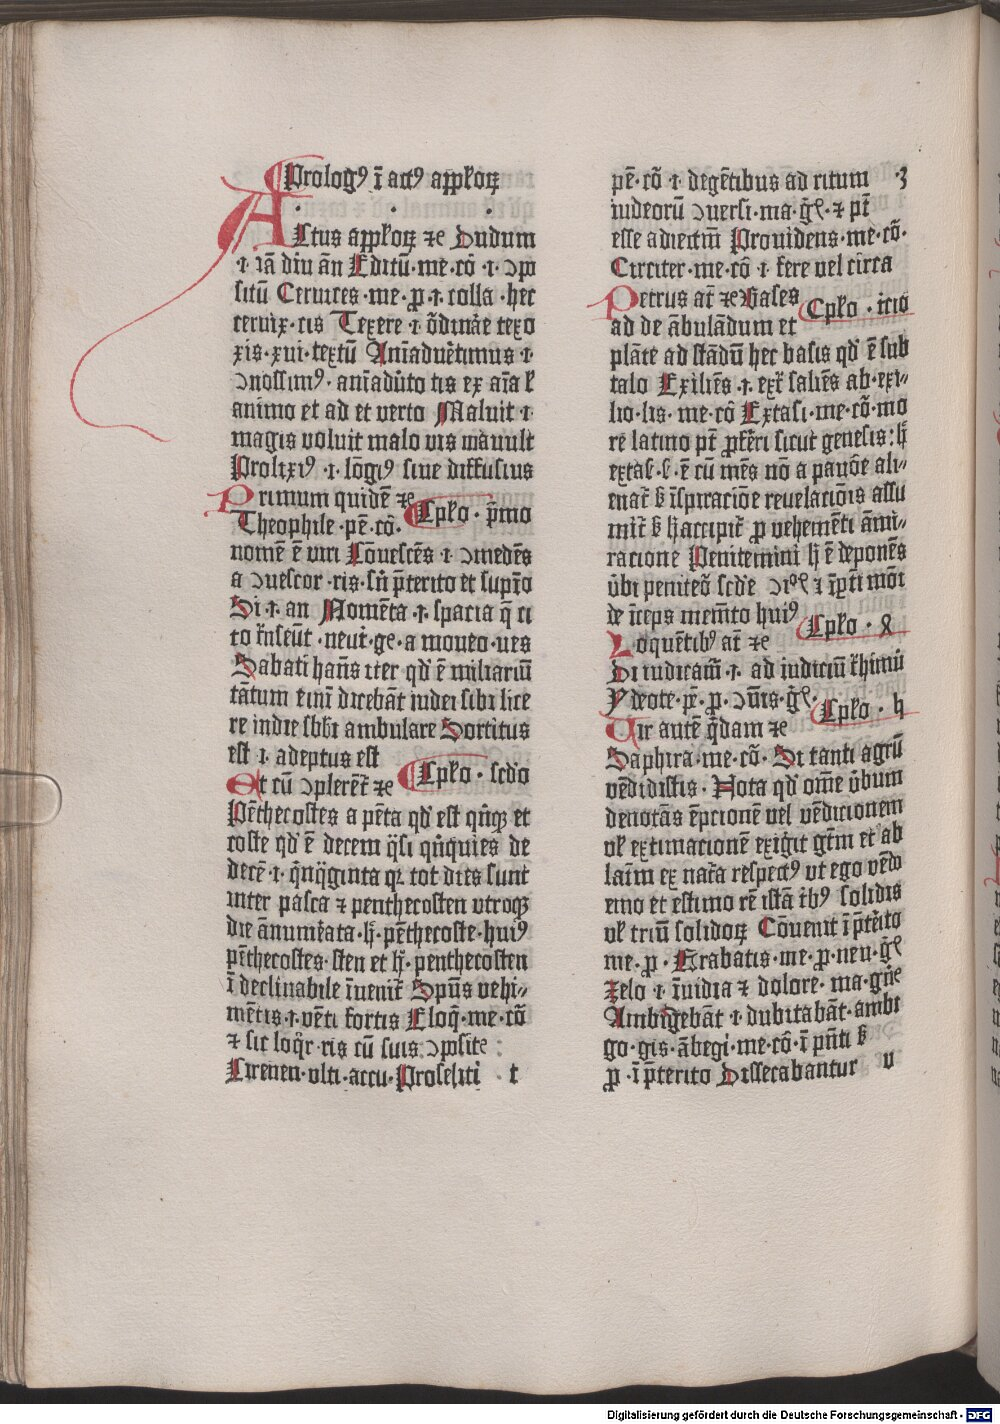 Prologꝰ ī actꝰ appłoꝝ
ACtus appłoꝝ ⁊c Dudum
·i· iā diu ān Editū·me·cō·i·ↄpo
situ Ceruices·me·p·i·colla·hec
ceruix·cis Texere·i·ōdinare texo
xis·xui·textū Aniaduētimus·i·
ↄnossimꝰ·aniaduto tis ex aīa ł
animo et ad et verto Maluit·i·
magis voluit malo vis mauult
Prolixiꝰ·i·lōgiꝰ siue diffusius
Primum quidē ⁊c
Cpło·pmo
Theophile·pē·cō·
nomē ē viri Cōuescēs·i·ↄmedēs
a ↄuescor·ris·sū pterito et supīo
Si·i·an Momēta·i·spacia q̄ ci
to trāseūt·neut·ge·a moueo·ues
Sabati hañs iter qd' ē miliariū
tātum eīm dicebāt iudei sibi lice
re in die sbbi ambulare Sortitus
est·i·adeptus est
Et cū ↄplerēt ⁊c
Cpło·scdo
Pēthecostes a pēta qd' est quīqꝫ et
coste qd' ē decem qsi quīquies de
decē·i·quīqginta qꝛ tot dies sunt
inter pasca ⁊ penthecosten vtroqꝫ
die ānumerata·h·pēthecoste·huiꝰ
pēthecostes·sten et h·penthecosten
ī declinabile īuenit Spūs vehi⸗
mētis·i·vēti fortis Eloq̄·me·cō
⁊ sic loqr·ris cū suis ↄpsitꝭ
Cirenen·vlti·accu·Proseliti
pē·cō·i·degētibus ad ritum
iudeorū ↄuersi·ma·gñ·⁊ pt
esse adiectm Prouidens·me·cō·
Circiter·me·cō·i·fere vel circa
Petrus at ⁊c Bases
Cpło·icio
ad de ābulādum et
plāte ad stādū hec basis qd' ē sub
talo Exiliēs·i·extª saliēs ab·exi⸗
lio·lis·me·cō Extasi·me·cō·mo
re latino pt pferi sicut genesis:h
extas·s·ē cū mēs nō a pauore ali⸗
enat s īspiracione reuelacionis assu
mit s h accipit p vehemēti āmi⸗
racione Penitemini h ē deponēs
vbi peniteō scde ↄi·⁊ ipti mōi
de īceps memto huiꝰ
Loquētibꝰ at ⁊c
Cpło·4
Di iudicam·i·ad iudiciū thimū
Ydeote·pe·p·ↄuīs·gñ·
Cpło·h
Uir autē qdam ⁊c
Saphira·me·cō·Si tanti agrū
vēdidistis·Nota qd' om̄e vbum
denotās ēpcionē vel vēdicionem
vł extimacionē exigit gtm et ab
latm ex natra respectꝰ vt ego vēdo
emo et estimo rē istā tbꝰ solidis
vł triū solidoꝝ Cōuenit ī pterito
me·p·Errabatis·me·p·neu·gñ
Zelo·i·īuidia ⁊ dolore·ma·gñe
Ambigebāt·i·dubitabāt·ambi
go·gis·ābegi·me·cō·ī pnti s
p·ī pterito Dissecabantur
Digitalisierung gefördert durch die Deutsche Forschungsgemeinschaft - DFG